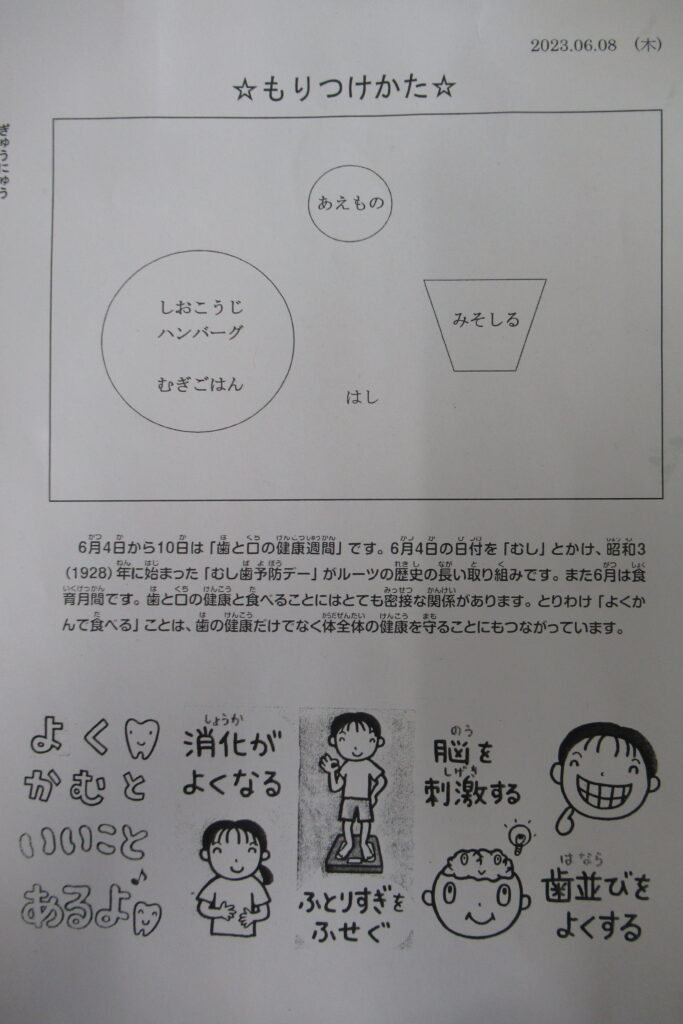 2023.06.08 (木)
☆もりつけかた☆
ぎゅうにゅう
あえもの
しおこうじ
ハンバーグ
むぎごはん
みそしる
はし
6月4日から10日は「歯と口の健康週間」です。6月4日の日付を「むし」とかけ、昭和3
(1928)年に始まった「むし歯予防デー」がルーツの歴史の長い取り組みです。また6月は食
育月間です。歯と口の健康と食べることにはとても密接な関係があります。とりわけ「よくか
んで食べる」ことは、歯の健康だけでなく体全体の健康を守ることにもつながっています。
よく
かむと
いいこと
あるよ♪
しょうか
消化が
よくなる
ふとりすぎを
ふせぐ
のう
脳を
しげき
刺激する
は なら
歯並びを
よくする